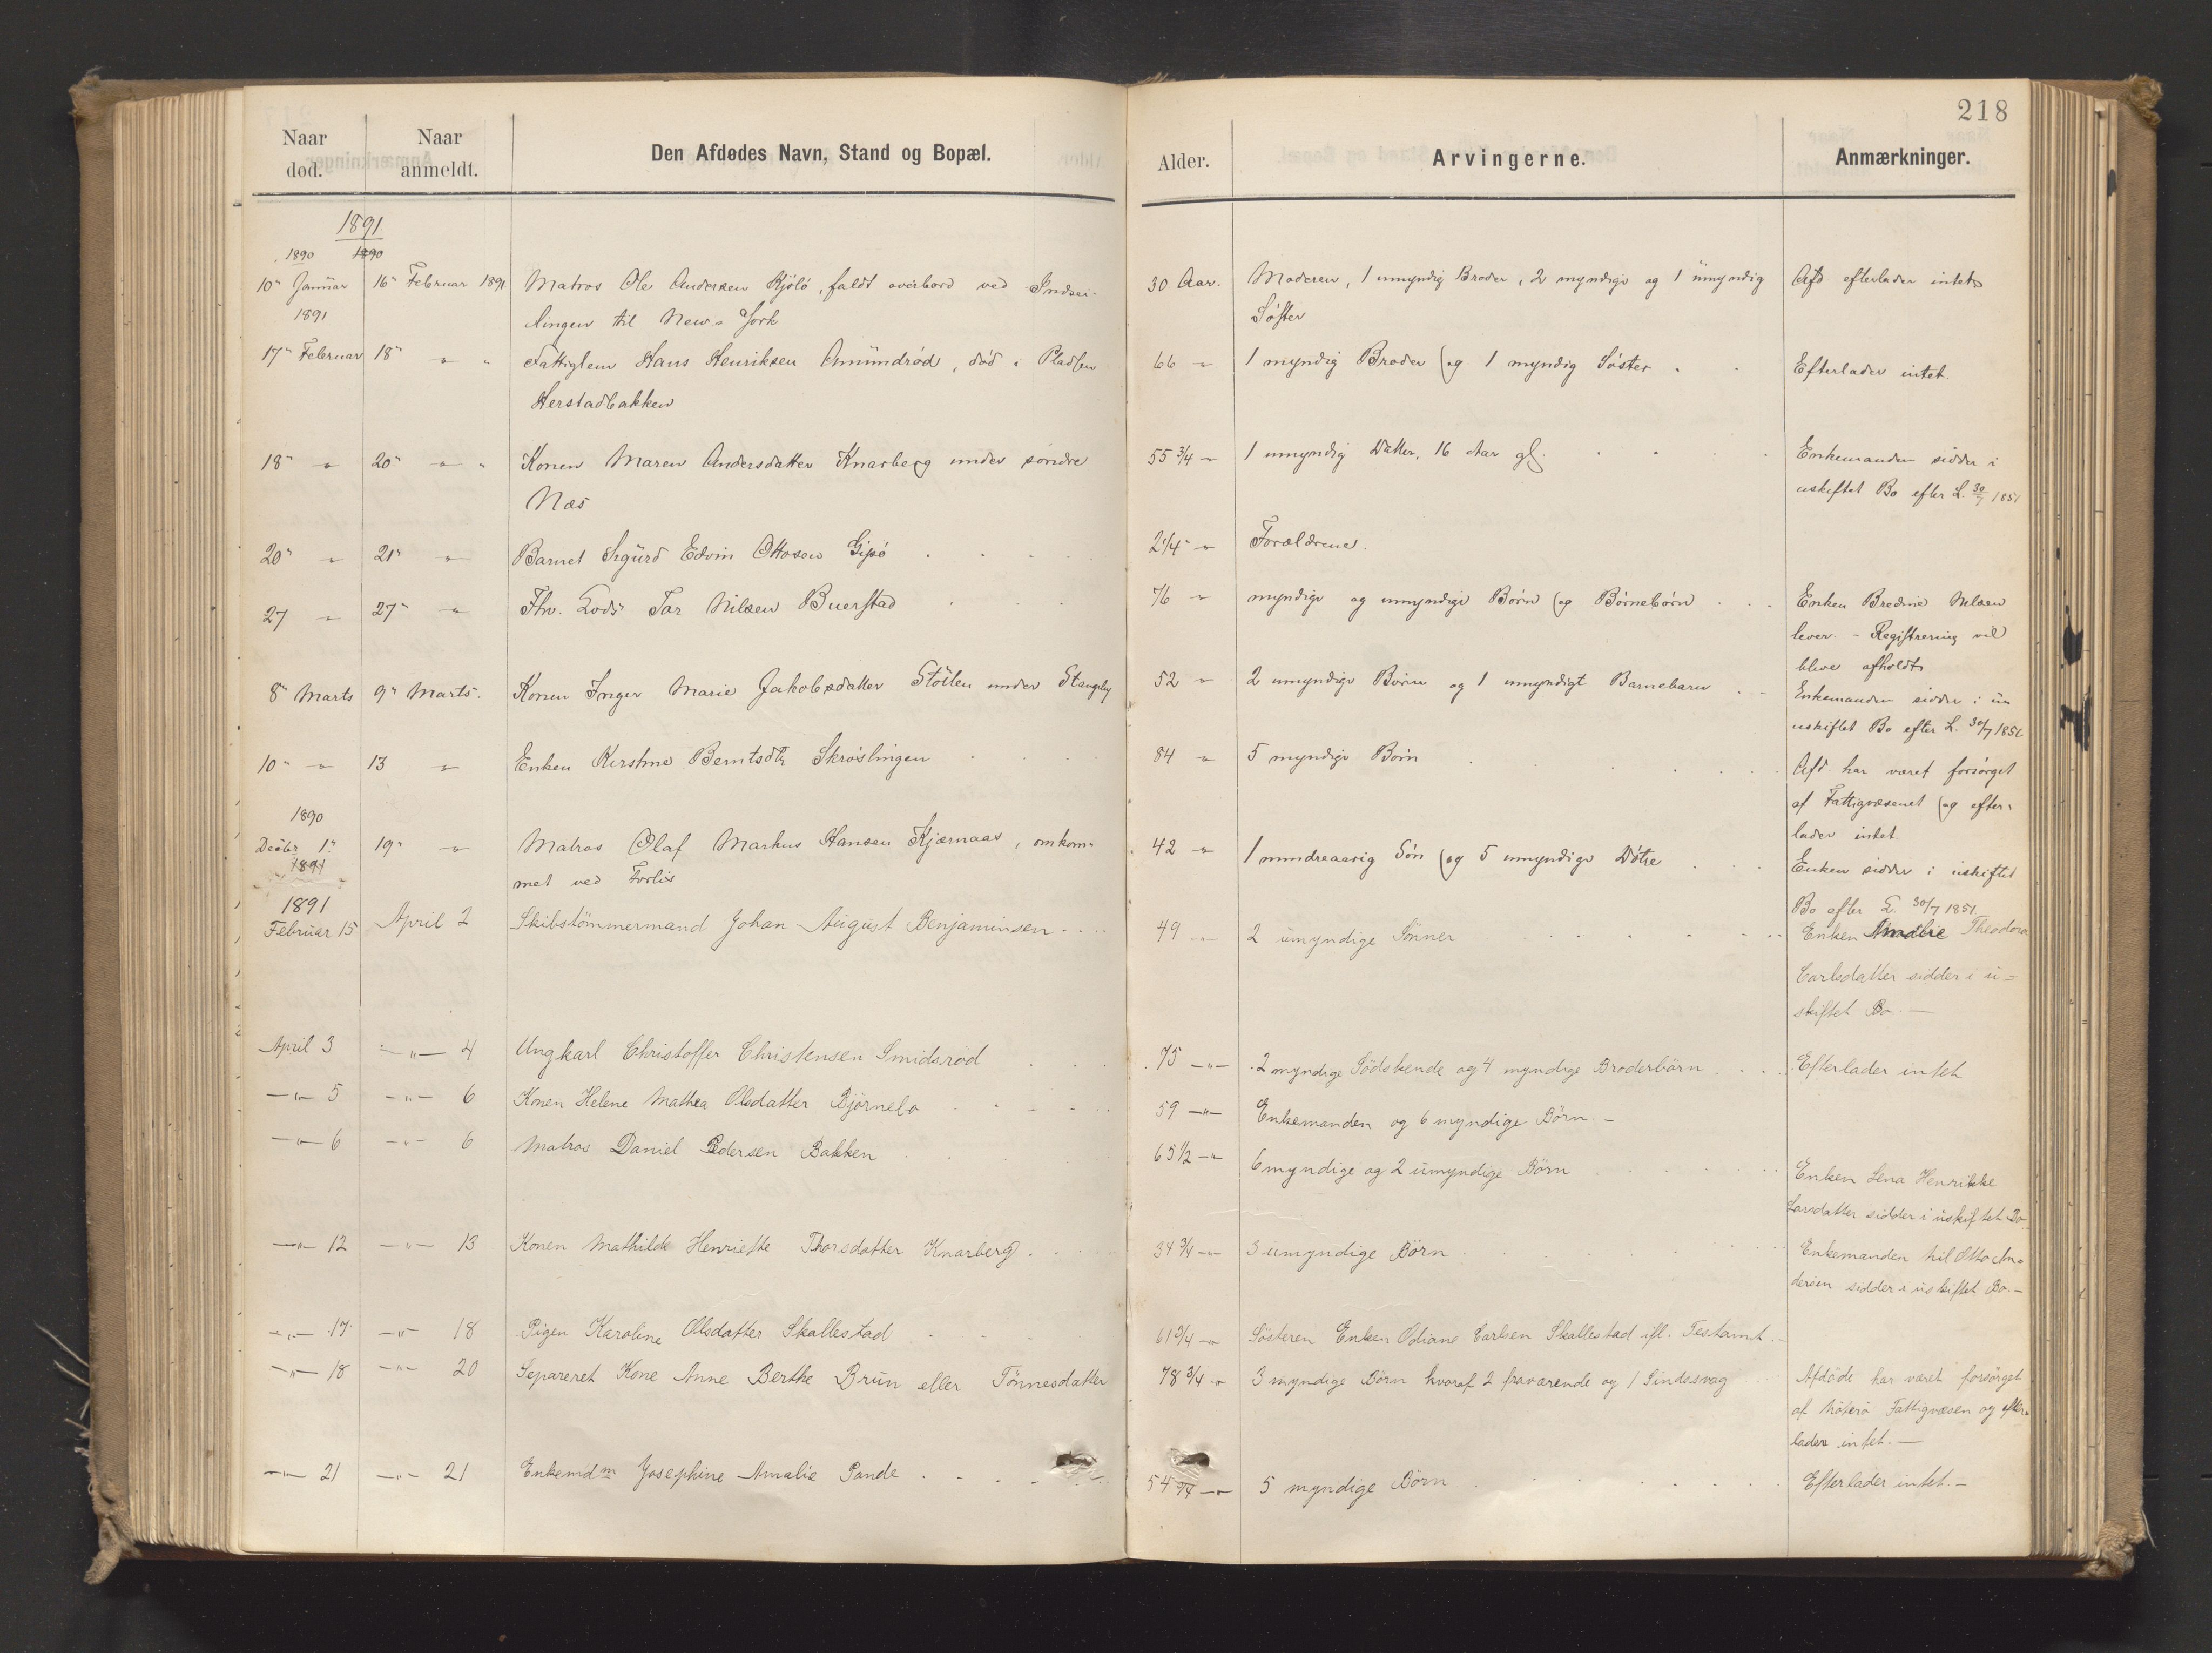 218
Naar død.
Naar anmeldt.
Den Afdødes Navn, Stand og Bopæl.
Alder.
Arvingerne.
Anmærkninger.
1891
1890 1890
10" Januar 16" Februar 1891 Matros Ole Andersen Kjöló, faldt overbord ved Indsei- 30 Aar. Moderen, 1 umyndig Broder, 2 myndige og 1 umyndig Afd efterlader intet
1891 lingen til New-York Söster
17" Februar 18" " " Fattiglem Hans Henriksen Amundröd, död i Pladsen 66 " 1 myndig Broder og 1 myndig Söster Efterlader intet.
Herstadbakken
18" " 20" " " Konen Maren Andersdatter Knarberg under söndre 55 3/4 " 1 umyndig Datter, 16 Aar gl. Enkemanden sidder i
Næs uskiftet Bo efter L. 30/7 1851
20" " 21" " Barnet Sigurd Edvin Ottosen Gipö 2 1/4 " Forældrene.
27 " 27" " Fhv. Lods Tar Nilsen Buerstad 76 " myndige og umyndige Börn og Börnebörn Enken Bredine Nilsen
lever. - Registrering vil
blive afholdt
8" Marts 9" Marts. Konen Inger Marie Jakobsdatter Stölen under Stangeby 52 " 2 umyndige Börn og 1 umyndigt Barnebarn Enkemanden sidder i u
uskiftet Bo efter L. 30/7 1851
10" " 13 " Enken Kirstine Berntsdtr Skröslingen 84 " 5 myndige Börn Afd har været forsörget
af Fattigvæsenet og efter-
lader intet.
1890
Decbr 1" 19" " Matros Olaf Markus Hansen Kjærnaas, omkom- 42 " 1 mindreaarig Sön og 5 umyndige Dötre Enken sidder i uskiftet
1891 met ved Forlis Bo efter L. 30/7 1851.
1891
Februar 15 April 2 Skibstömmermand Johan August Benjaminsen 49 " 2 umyndige Sönner Enken Amalie Theodora
Carlsdatter sidder i u=
skiftet Bo. —
April 3 —"— 4 Ungkarl Christoffer Christensen Smidsröd 75 —"— 2 myndige Södskende og 4 myndige Broderbörn Efterlader intet
—"— 5 —"— 6 Konen Helene Mathea Olsdatter Björnebo 59 —"— Enkemanden og 6 myndige Börn. —
—"— 6 —"— 6 Matros Daniel Pedersen Bakken 65 1/2 —"— 6 myndige og 2 umyndige Börn Enken Lena Henrikke
Larsdatter sidder i uskiftet Bo.
—"— 12 —"— 13 Konen Mathilde Henriette Thorsdatter Knarberg. 34 3/4 —"— 3 umyndige Börn Enkemanden Nil Otto An-
dersen sidder i uskiftet Bo. —
—"— 17 —"— 18 Pigen Karoline Olsdatter Skallestad 61 3/4 —"— Sösteren Enken Odiane Carlsen Skallestad ifl. Testamt. —
—"— 18 —"— 20 Separeret Kone Anne Berthe Brun eller Tönnesdatter 78 3/4 —"— 3 myndige Börn hvoraf 2 fraværende og 1 Sindssvag Afdöde har været forsörget
af Nöterö Fattigvæsen og efter-
lader intet. —
—"— 21 —"— 21 Enkemdm Josephine Amalie Sande 54 —"— 5 myndige Börn Efterlader intet. —